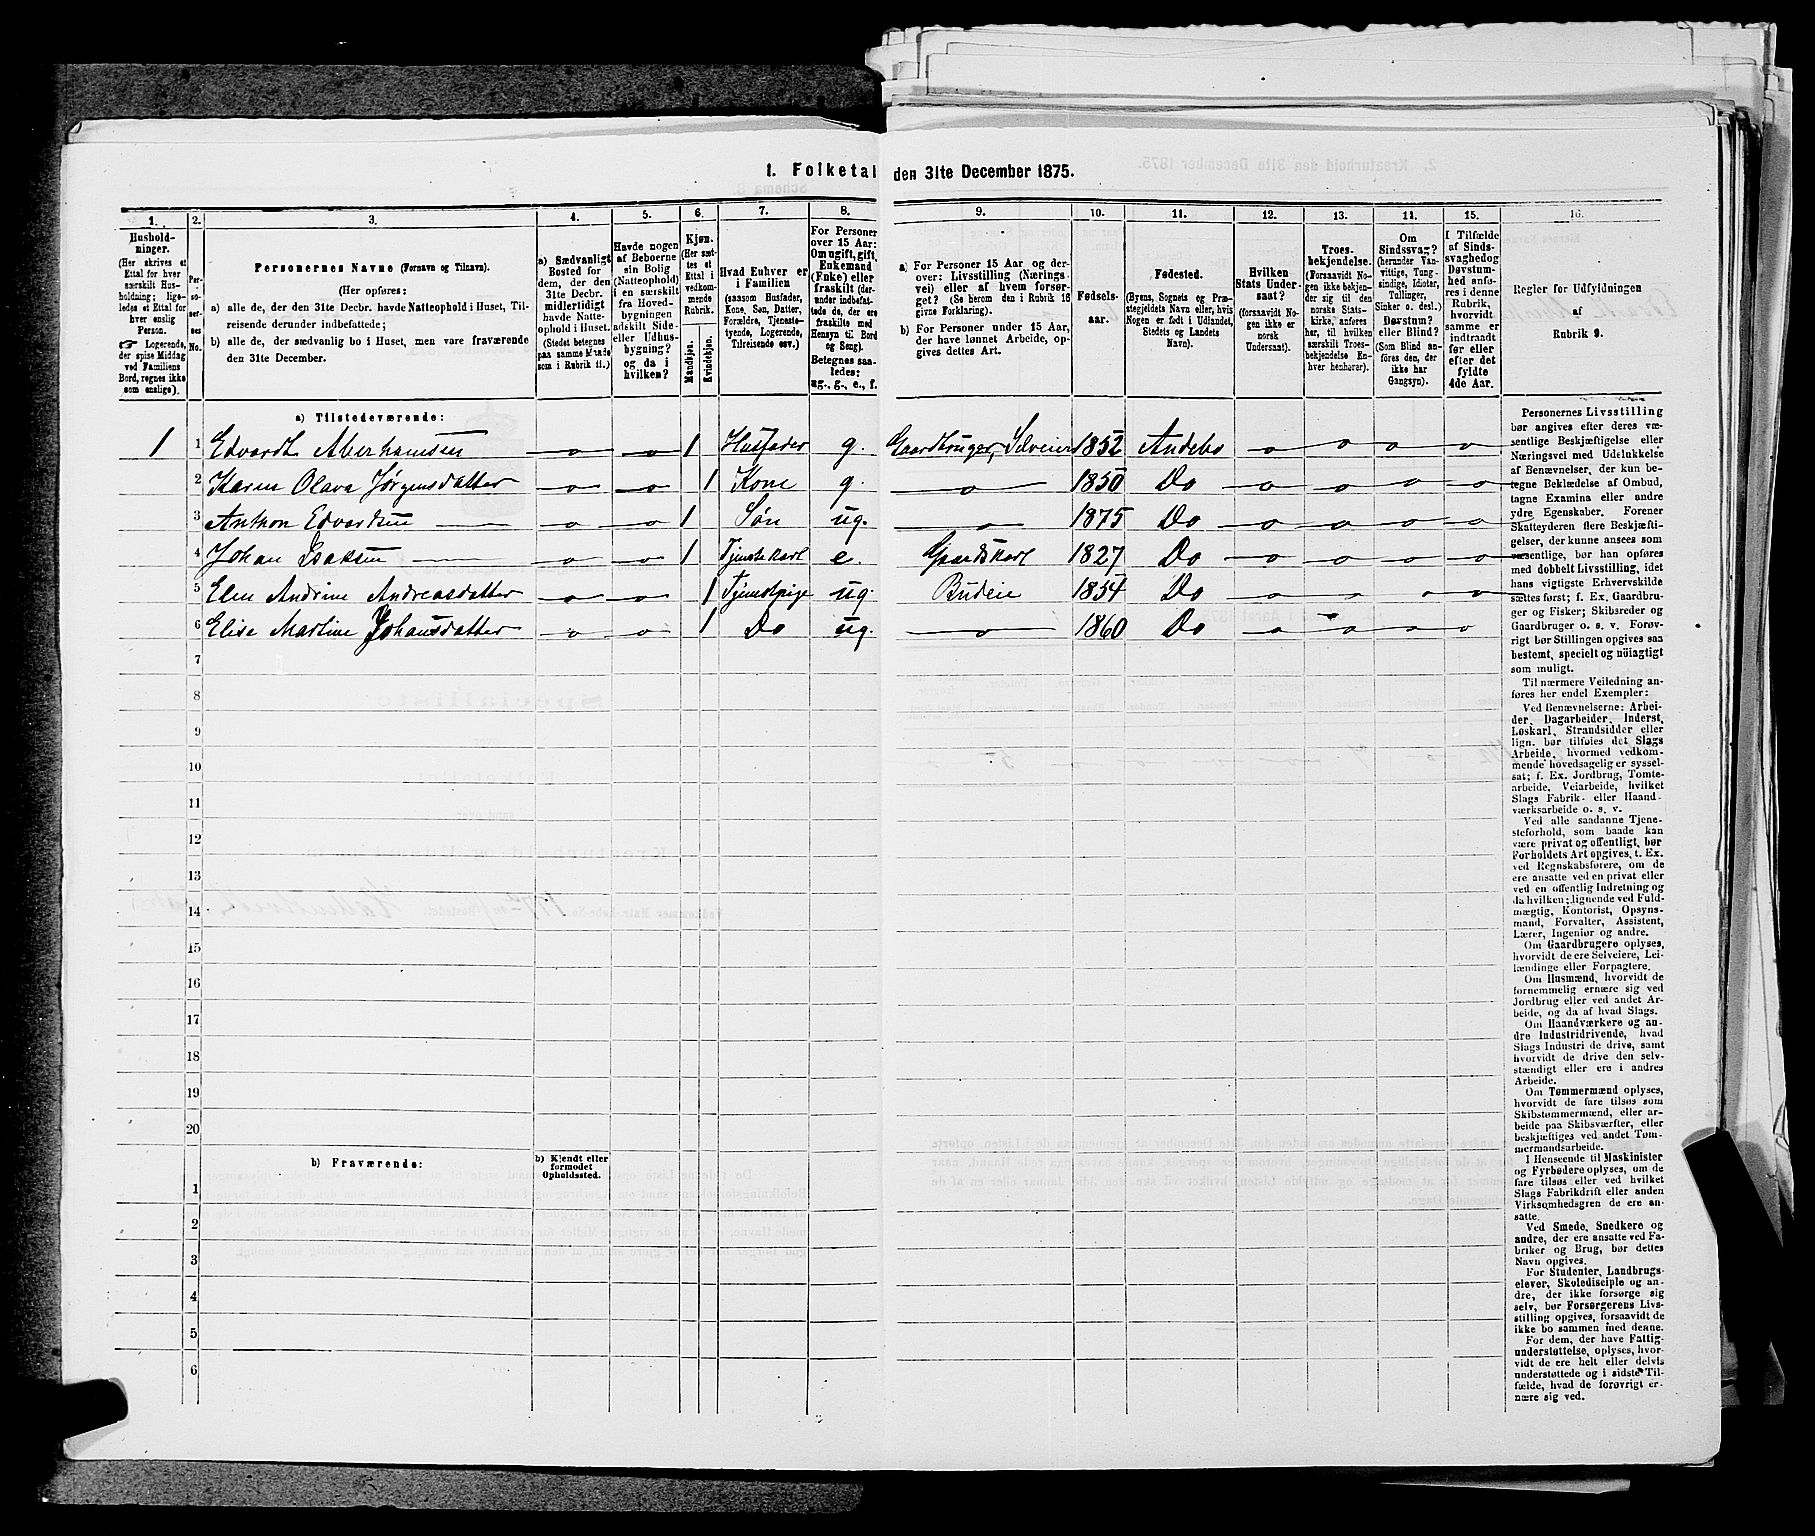 1. Folketal den 31te December 1875.
1. 2. 3. 4. 5. 6. 7. 8. 9. 10. 11. 12. 13. 14. 15. 16.
Hushold-
ninger.
(Her skrives et
Ettal for hver
særskilt Hus-
holdning; lige-
ledes et Ettal for
hver enslig
Person.
☞ Logerende,
der spise Middag
ved Familiens
Bord, regnes ikke
som enslige).
Per-
so-
ner-
nes
No.
Personernes Navne (Fornavn og Tilnavn).
(Her opføres:
a) alle de, der den 31te Decbr. havde Natteophold i Huset, Til-
reisende derunder indbefattede;
b) alle de, der sædvanlig bo i Huset, men vare fraværende
den 31te December.
a) Sædvanligt
Bosted for
dem, der den
31te Decbr.
midlertidigt
havde Natte-
ophold i Huset.
(Stedet betegnes
paa samme Maade
som i Rubrik 11.)
Havde nogen
af Beboerne
sin Bolig
(Natteophold)
i en særskilt
fra Hoved-
bygningen
adskilt Side-
eller Udhus-
bygning?
og da i
hvilken?
Kjøn.
(Her sæt-
tes et
Ettal i
vedkom-
mende
Rubrik.
Mandkjøn.
Kvindekjøn.
Hvad Enhver er
i Familien
(saasom Husfader,
Kone, Søn, Datter,
Forældre, Tjeneste-
tyende, Logerende,
Tilreisende osv.)
For Personer
over 15 Aar:
Om ugift, gift,
Enkemand
(Enke) eller
fraskilt (der-
under indbefat-
tede de, der ere
fraskilte med
Hensyn til Bord
og Seng).
Betegnes saa-
ledes:
ug., g., e., f.
a) For Personer 15 Aar og der-
over: Livsstilling (Nærings-
vei) eller af hvem forsør-
get? (Se herom den i Rubrik 16
givne Forklaring).
b) For Personer under 15 Aar,
der have lønnet Arbeide, op-
gives dettes Art.
Fødsels-
aar.
Fødested.
(Byens, Sognets og Præ-
stegjeldets Navn eller, hvis
Nogen er født i Udlandet,
Stedets og Landets
Navn).
Hvilken
Stats Under-
saat?
(forsaavidt No-
gen ikke er
norsk
Undersaat).
Troes-
bekjendelse.
(Forsaavidt No-
gen ikke bekjen-
der sig til den
norske Stats-
kirke, anføres
her, til hvilken
særskilt Troes-
bekjendelse En-
hver henhører).
Om
Sindssvag?
(herunder Van-
vittige, Tung-
sindige, Idioter,
Tullinger,
Sinker o. desl.)
Døvstum?
eller Blind?
(Som Blind an-
føres den, der
ikke har
Gangsyn).
I Tilfælde
af Sinds-
svaghed og
Døvstum-
hed anfø-
res i denne
Rubrik,
hvorvidt
samme er
indtraadt
før eller
efter det
fyldte
4de Aar.
Regler for Udfyldningen
af
Rubrik 9.
a) Tilstedeværende:
1 1 Edvardt Aberhamsen 1 Husfader g. Gaardbruger, Selveier 1852 Andebo
2 Karen Olava Jørgensdatter 1 Kone g. 1850 Do
3 Anthon Edvardsen 1 Søn ug. 1875 Do
4 Johan Isaksen 1 Tjenstekarl e. Gaardskarl 1827 Do
5 Elen Andrine Andreasdatter 1 Tjenstpige ug. Budeie 1854 Do
6 Elise Martine Johansdatter 1 Do ug. 1860 Do
7
8
9
10
11
12
13
14
15
16
17
18
19
20
b) Fraværende:
b) Kjendt eller
formodet
Opholdssted.
1
2
3
4
5
6
Personernes Livsstilling
bør angives efter deres væ-
sentlige Beskjæftigelse eller
Næringsvei med Udelukkelse
af Benævnelser, der kun be-
tegne Beklædelse af Ombud,
tagne Examina eller andre
ydre Egenskaber. Forener
Skatteyderen flere Beskjæfti-
gelser, der kunne ansees som
væsentlige, bør han opføres
med dobbelt Livsstilling, idet
hans vigtigste Erhvervskilde
sættes først; f. Ex. Gaardbru-
ger og Fisker; Skibsreder og
Gaardbruger o. s. v. Forøv-
rigt bør Stillingen opgives saa
bestemt, specielt og nøiagtigt
som muligt.
Til nærmere Veiledning an-
føres her endel Exempler:
Ved Benævnelserne: Arbei-
der, Dagarbeider, Inderst,
Løskarl, Strandsidder eller
lign. bør tilføies det Slags
Arbeide, hvormed vedkom-
mende hovedsagelig er syssel-
sat; f. Ex. Jordbrug, Tomte-
arbeide, Veiarbeide, hvilket
Slags Fabrik- eller Haand-
værksarbeide o. s. v.
Ved alle saadanne Tjene-
steforhold, som baade kan
være privat og offentligt, bør
Forholdets Art opgives, t. Ex.
ved Regnskabsførere, om de
ere ansatte ved en privat eller
ved en offentlig Indretning og
da hvilken; lignende ved Fuld-
mægtig, Kontorist, Opsyns-
mand, Forvalter, Assistent,
Lærer, Ingeniør og andre.
Om Gaardbrugere oplyses,
hvorvidt de ere Selveiere, Lei-
lændinge eller Forpagtere.
Om Husmænd, hvorvidt de
fornemmelig ernære sig ved
Jordbrug eller ved andet Ar-
beide, og da af hvad Slags.
Om Haandværkere og an-
dre Industridrivende, hvad
Slags Industri de drive, samt
hvorvidt de drive den selv-
stændigt eller ere i andres
Arbeide.
Om Tømmermænd oplyses,
hvorvidt de fare tilsøs som
Skibstømmermænd, eller ar-
beide paa Skibsværfter, eller
beskjæftiges ved andet Tøm-
mermandsarbeide.
I Henseende til Maskinister
og Fyrbødere oplyses, om de
fare tilsøs eller ved hvilket
Slags Fabrikdrift eller anden
Virksomhedsgren de ere an-
satte.
Ved Smede, Snedkere og
andre, der ere ansatte ved Fa-
briker og Brug, bør dettes
Navn opgives.
For Studenter, Landbrugs-
elever, Skoledisciple og an-
dre, der ikke forsørge sig
selv, bør Forsørgerens Livs-
stilling opgives, forsaavidt de
ikke bo sammen med denne.
For dem, der have Fattig-
understøttelse, oplyses, hvor-
vidt de ere helt eller delvis
understøttede og i sidste Til-
fælde, hvad de forøvrigt er-
nære sig ved.